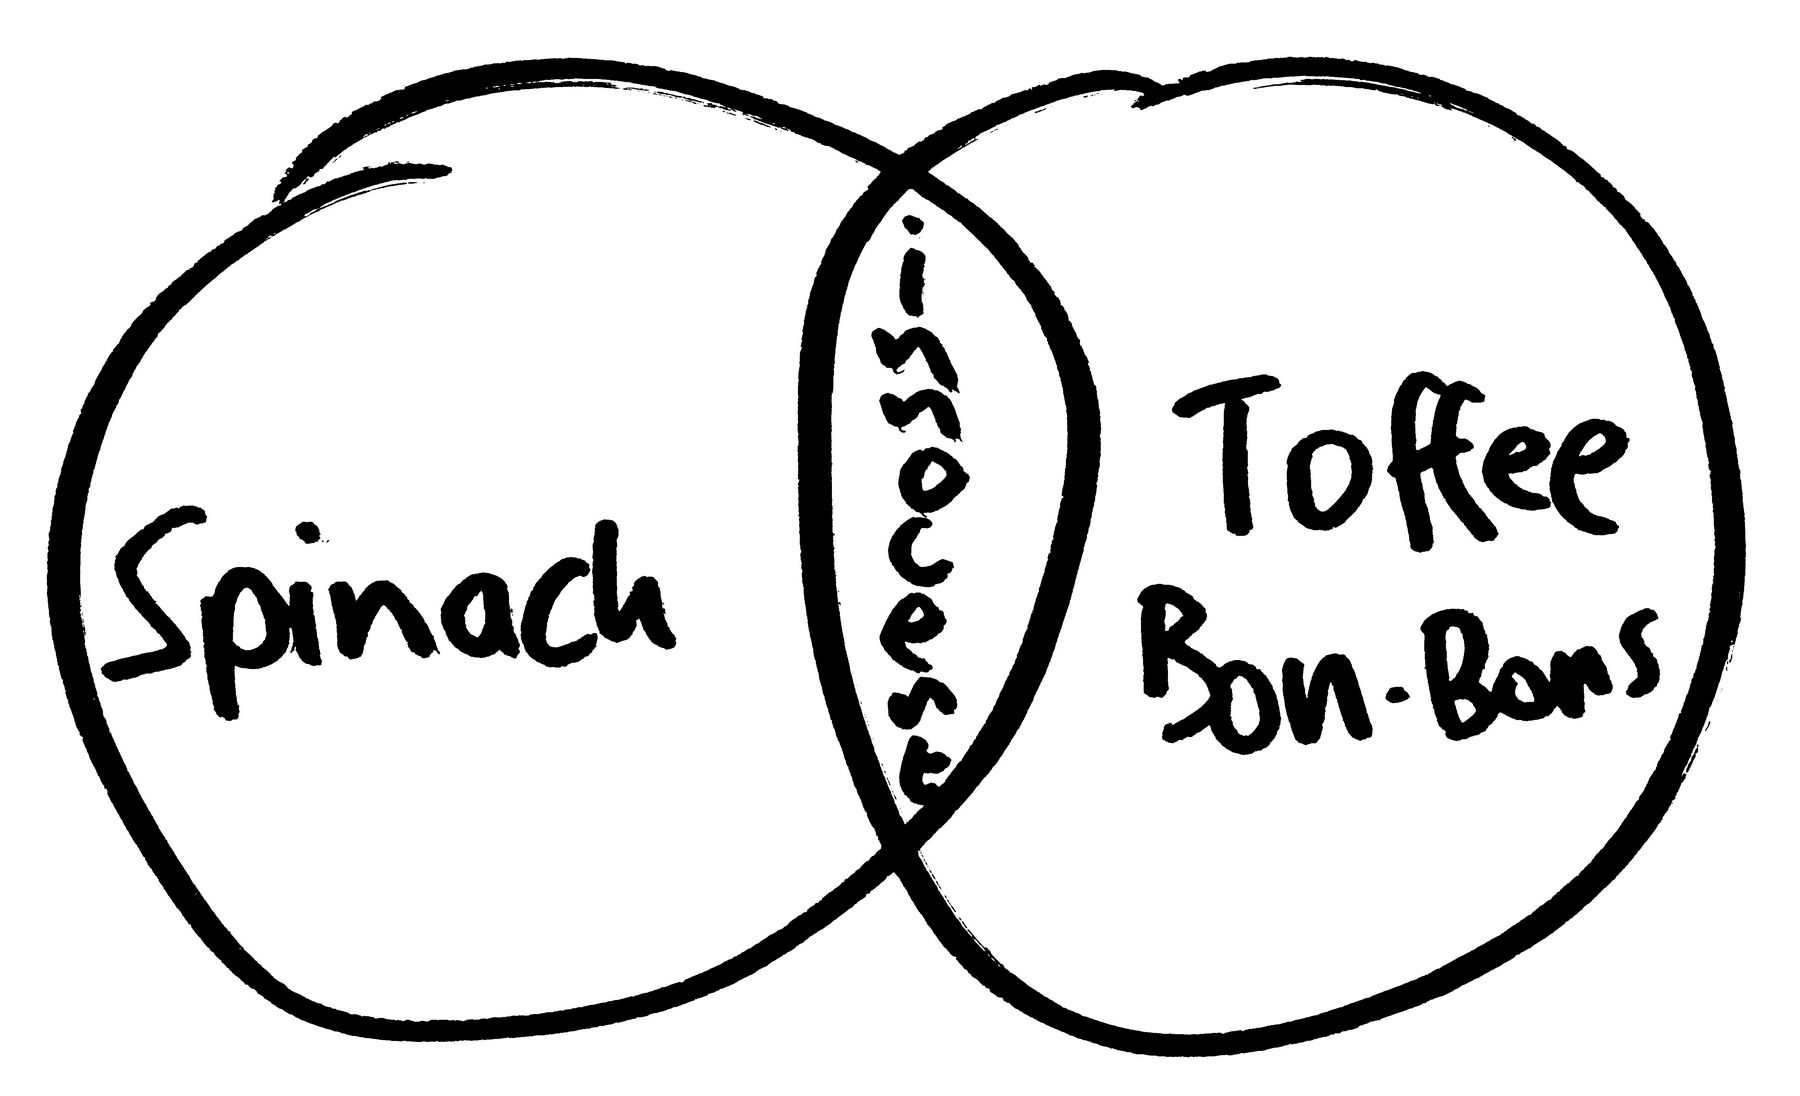 Spinach
innocent
Toffee
Bon-Bons